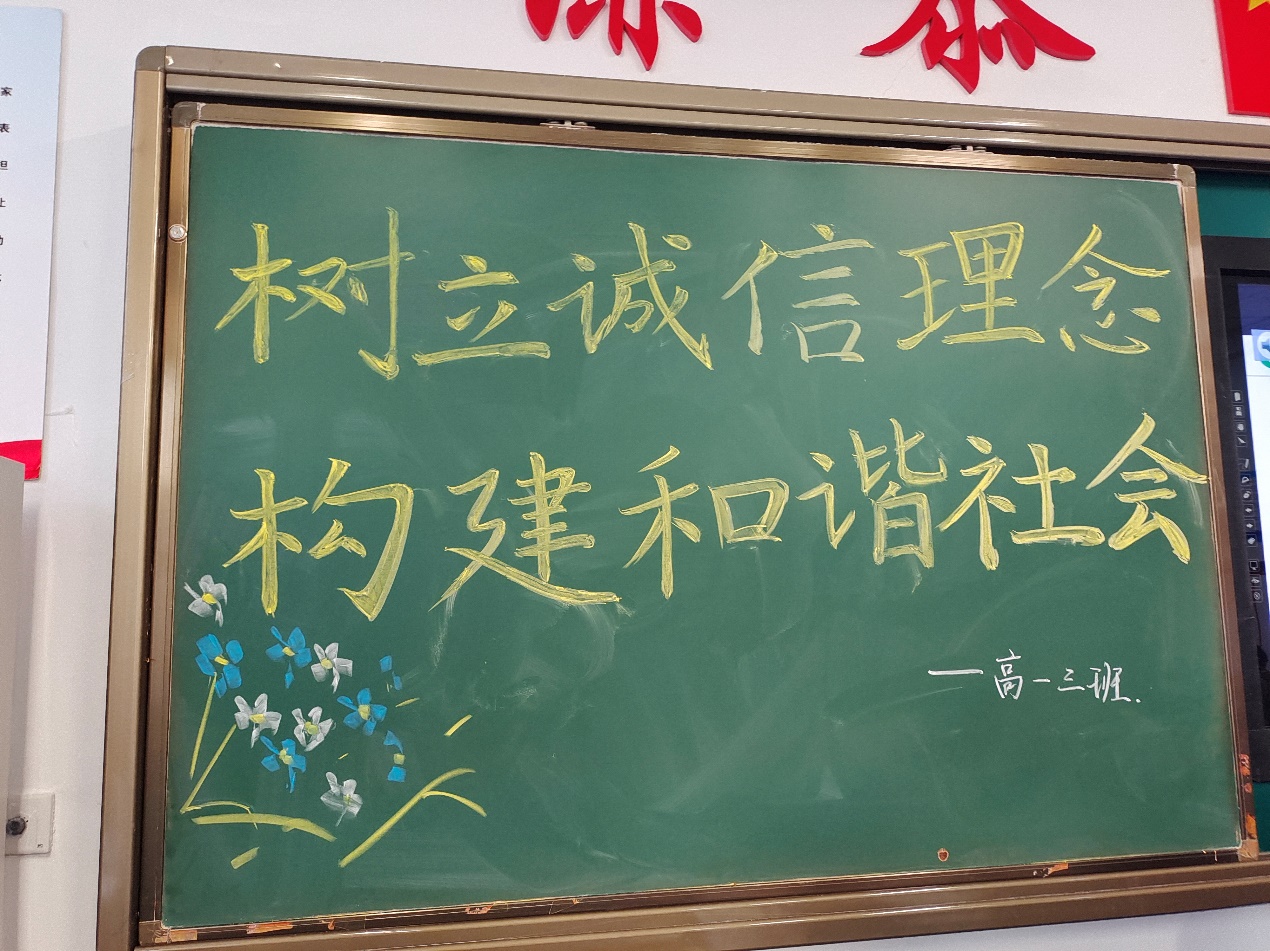 树立诚信理念
构建和谐社会
—高一三班.
家
表
担
让